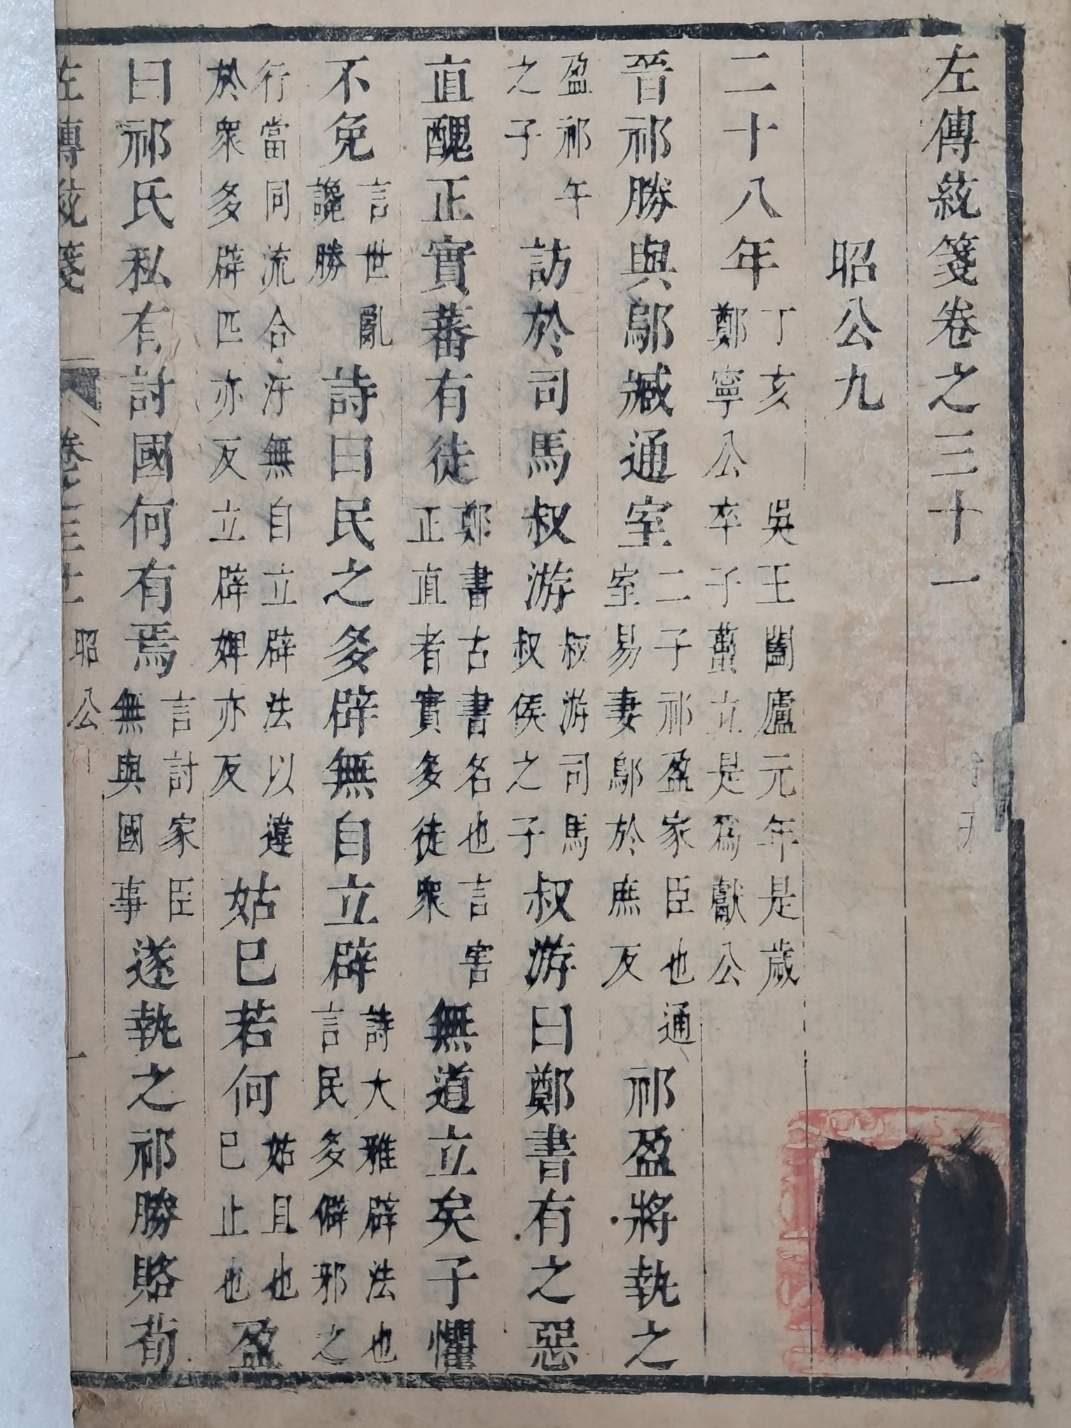 左傳統箋卷之三十一
昭公九
二十八年丁亥 吳王闔廬元年是歲鄭寧公卒子蠆立是爲獻公
晉祁勝與鄔臧通室二子祁盈家臣也通室易妻鄔於庶反祁盈將執之
盈祁午之子訪於司馬叔游叔游司馬叔侯之子叔游曰鄭書有之惡
直醜正實蕃有徒鄭書古書名也言害正直者實多徒衆無道立矣子懼
不免言世亂讒勝詩曰民之多辟無自立辟詩大雅辟法也言民多僻邪之
行當同流合汙無自立辟法以違於衆多辟匹亦反立辟婢亦反姑巳若何姑且也巳止也盈
曰祁氏私有討國何有焉言討家臣無與國事遂執之祁勝賂荀
左傳統箋 卷之三十一 昭公 一